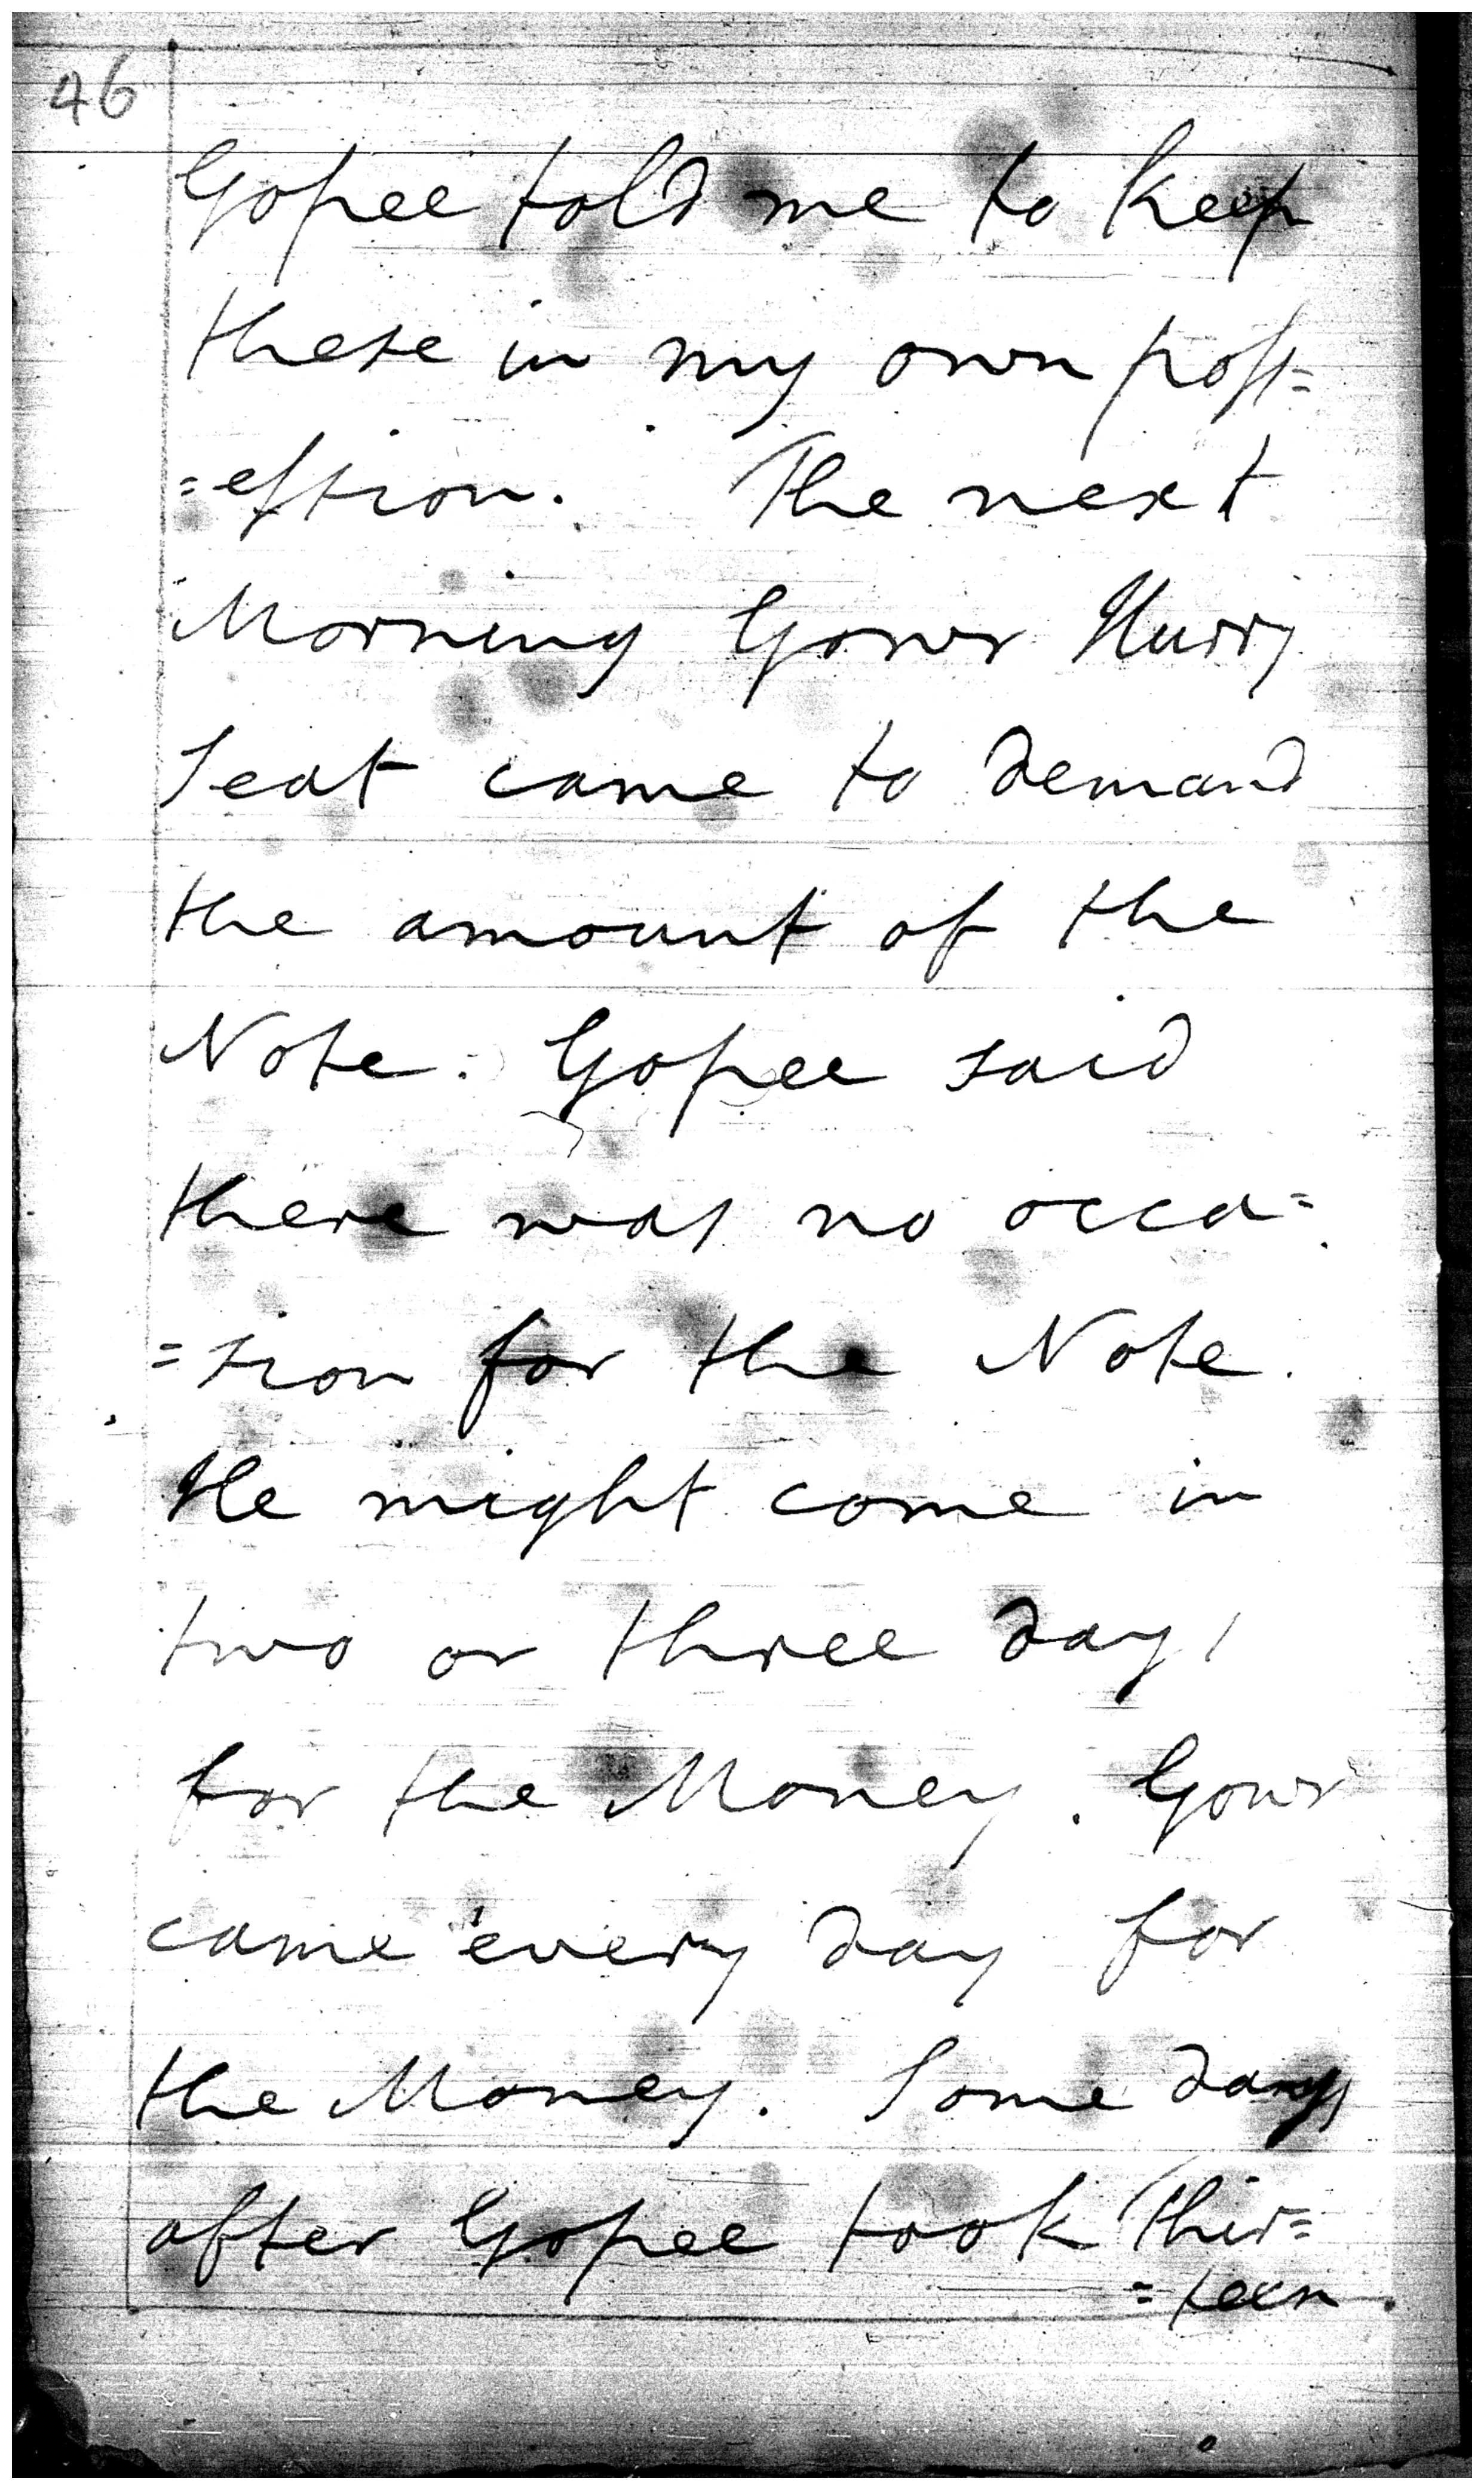 46
Gopee told me to keep
these in my own poss=
=ession. The next
Morning Gowr Hurry
Seat came to demand
the amount of the
Note. Gopee said
there was no occa=
=sion for the Note.
He might come in
two or three days
for the Money. Gowr
came every day for
the Money. Some days
after Gopee took Thir=
=teen.